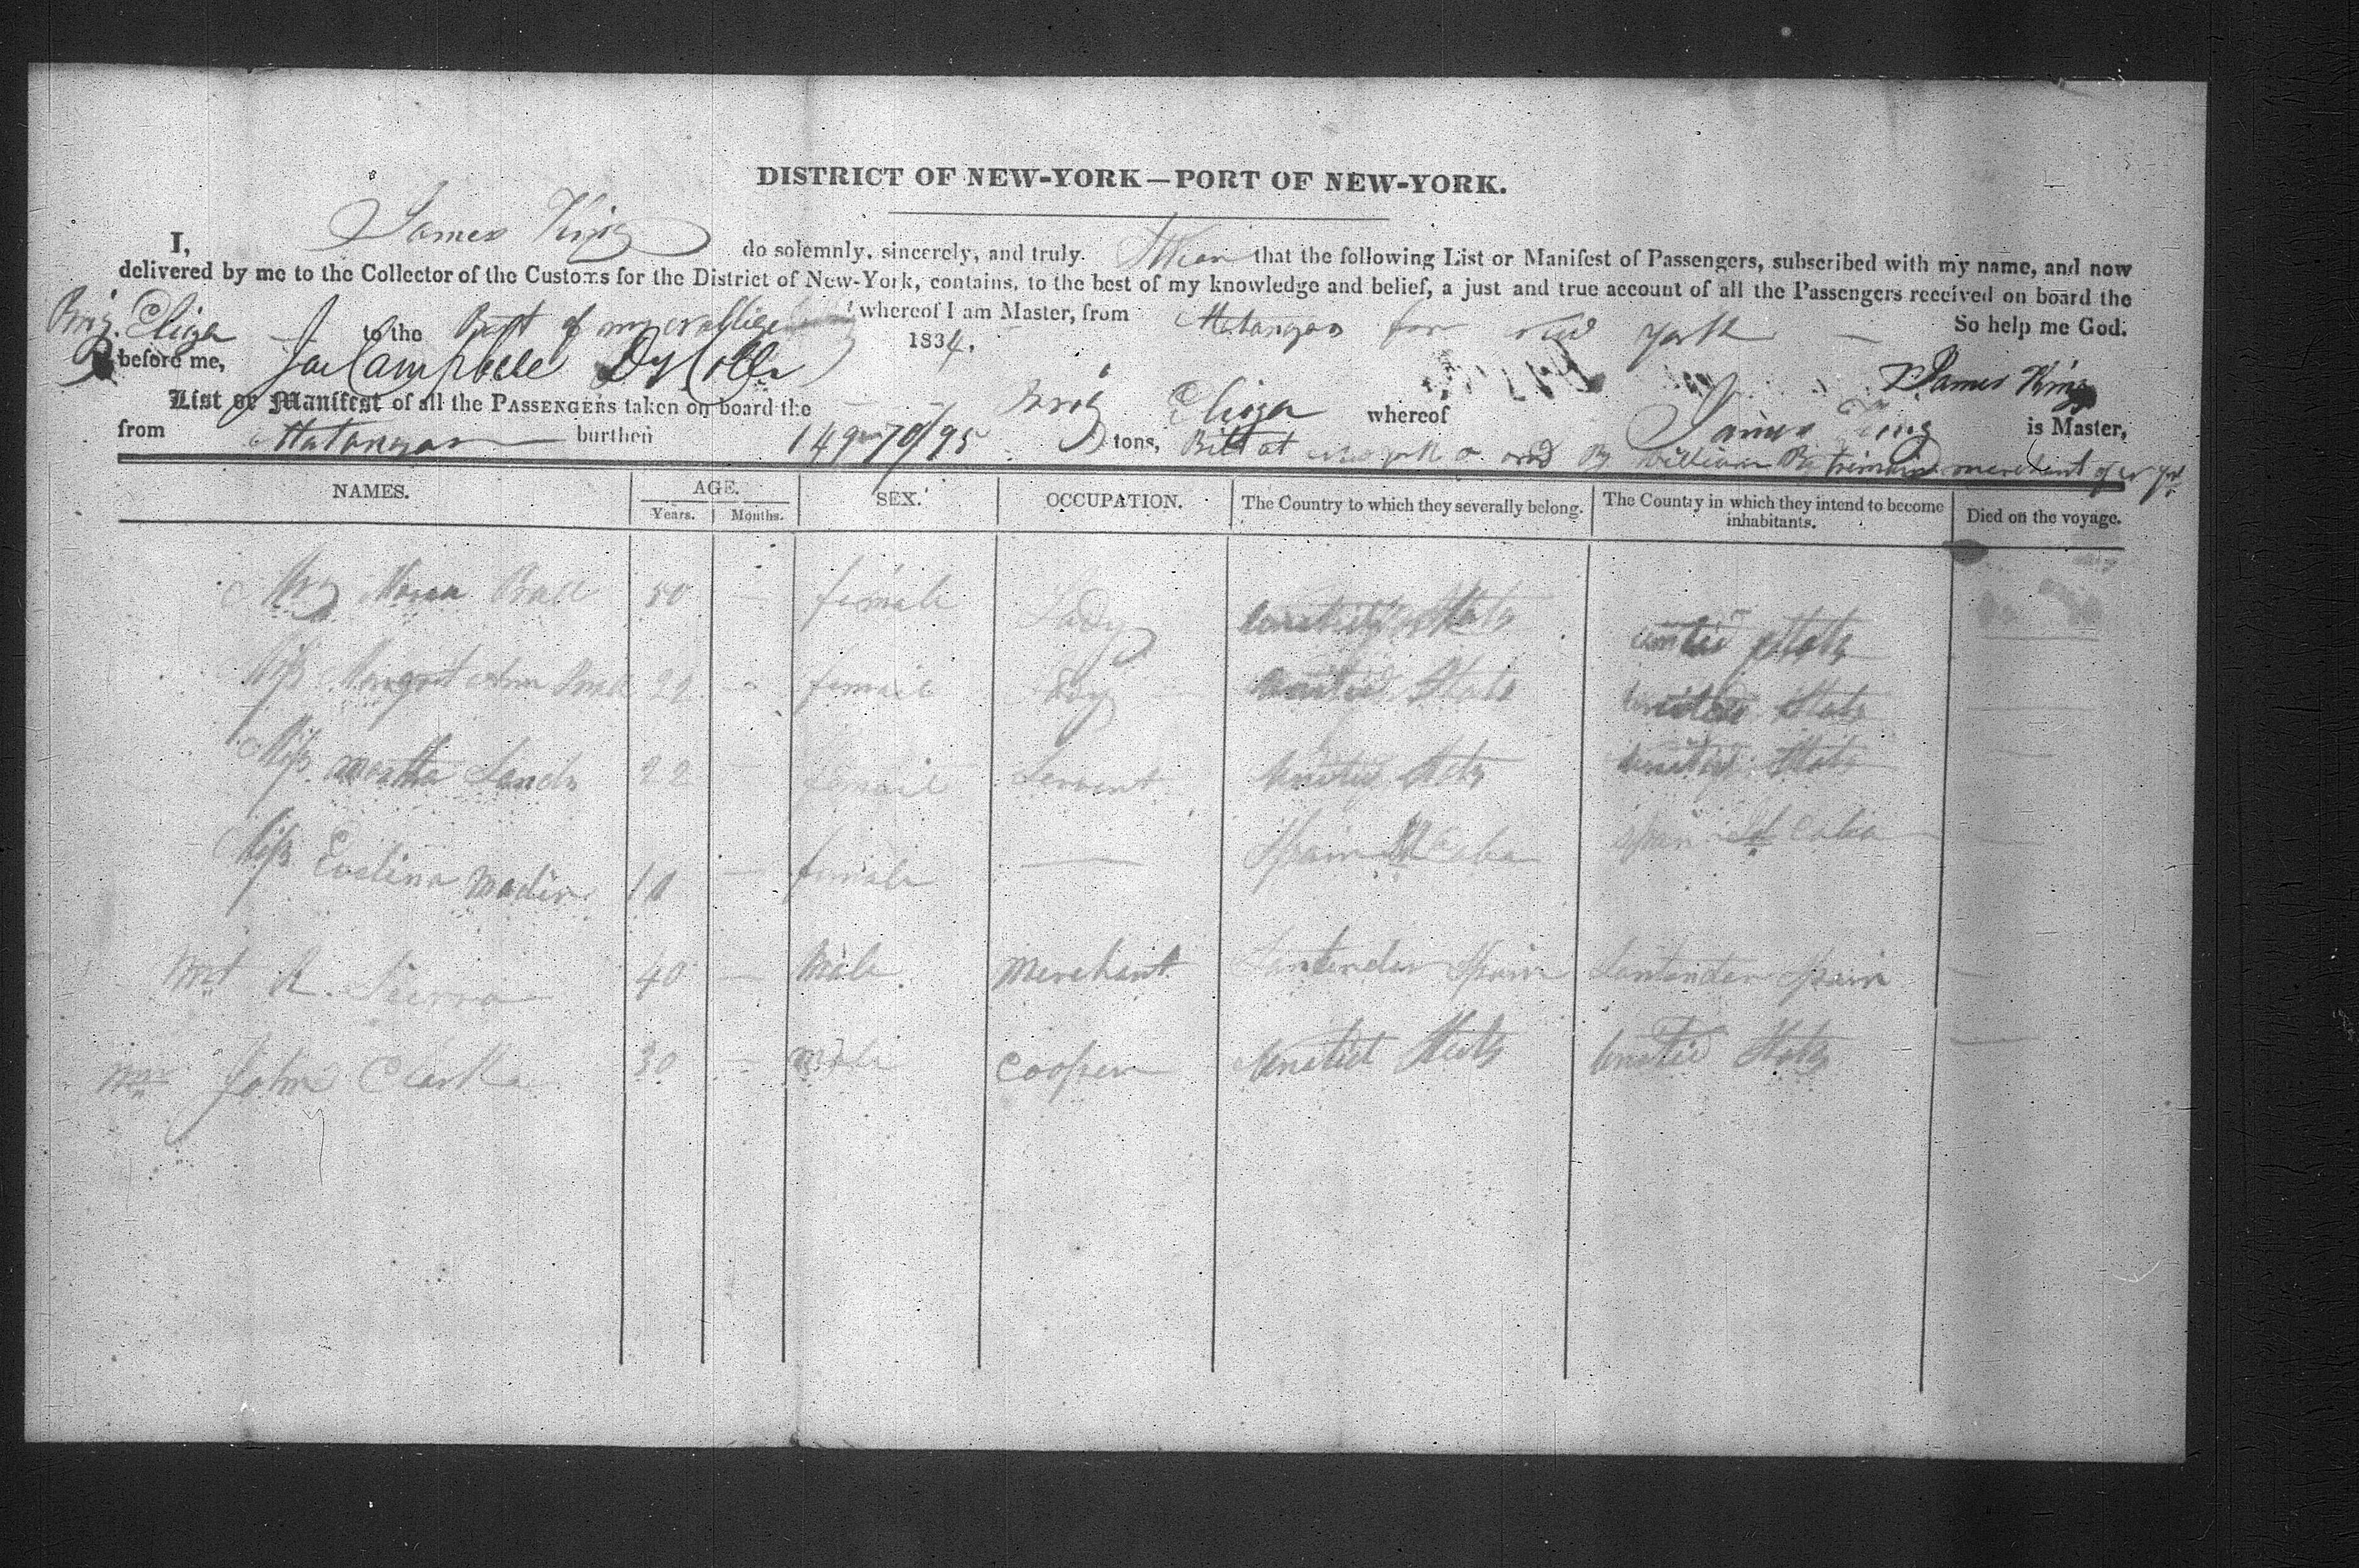 DISTRICT OF NEW-YORK—PORT OF NEW-YORK.
I, James King do solemnly, sincerely, and truly. Swear that the following List or Manifest of Passengers, subscribed with my name, and now
delivered by me to the Collector of the Customs for the District of New-York, contains, to the best of my knowledge and belief, a just and true account of all the Passengers received on board the
Brig Eliza to the Best of my whereof I am Master, from Matanzas for new york So help me God.
before me, Campbell 1834. James King
List or Manifest of all the PASSENGERS taken on board the Brig Eliza whereof James King is Master,
from Matanzas burthen 149 70/95 tons, Bilt at by William merchant of
NAMES. AGE. Years. Months. SEX. OCCUPATION. The Country to which they severally belong. The Country in which they intend to become inhabitants. Died on the voyage.
Mrs Maria 50 — female Lady united States united States —
Miss Ann 22 — female Lady united States united States —
Miss martha Sands 22 — female Servent united States united States —
Miss Evelina 10 — female — Spain Cuba Spain Cuba —
R. Sierra 40 — Male Merchant Santander Spain Santander Spain —
Mr John Clarke 30 — male Cooper united States united States —